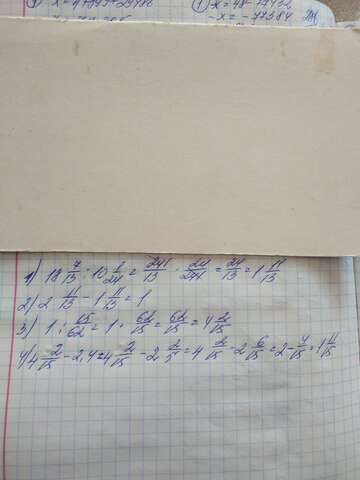 1) x = 48 - 77432
-x = -77384
1) 18 7/13 : 10 1/24 = 241/13 · 24/241 = 24/13 = 1 11/13
2) 2 11/13 - 1 11/13 = 1
3) 1 : 15/62 = 1 · 62/15 = 62/15 = 4 2/15
4) 4 2/15 - 2,4 = 4 2/15 - 2 2/5 = 4 2/15 - 2 6/15 = 2 - 4/15 = 1 11/15